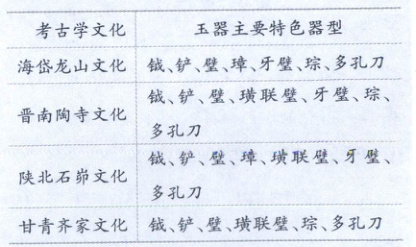 考古学文化 玉器主要特色器型
海岱龙山文化 钺、铲、璧、璋、牙璧、琮、多孔刀
晋南陶寺文化 钺、铲、璧、璜联璧、牙璧、琮、
多孔刀
陕北石峁文化 钺、铲、璧、璋、璜联璧、牙璧、
多孔刀
甘青齐家文化 钺、铲、璧、璜联璧、琮、多孔刀